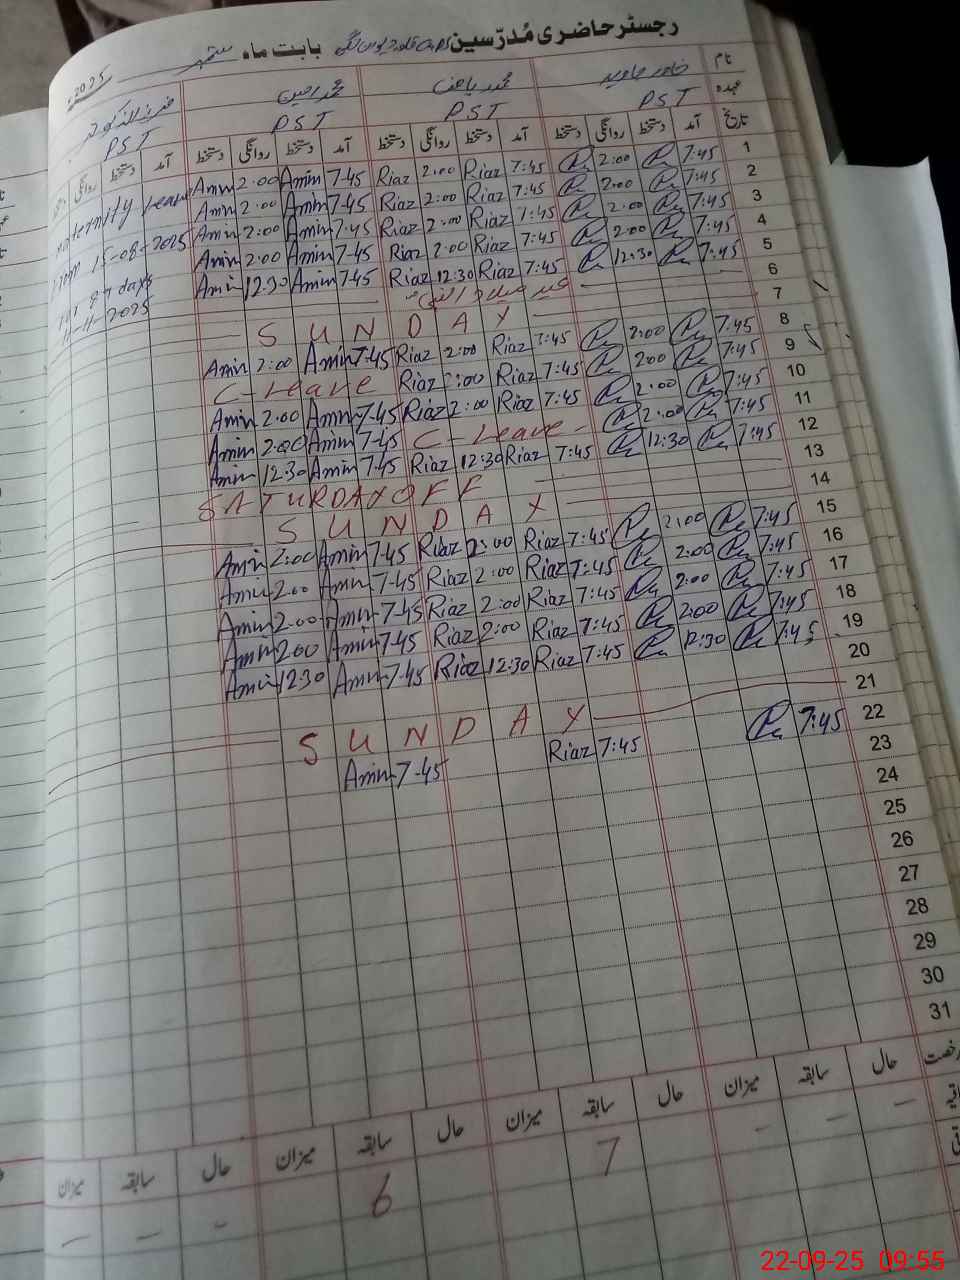 رجسٹر حاضری مُدرّسین GPS بابت ماہ ستمبر 2025ء
نام خاور جاوید محمد ریاض محمد امین
عہدہ PST PST PST PST
تاریخ آمد دستخط روانگی دستخط آمد دستخط روانگی دستخط آمد دستخط روانگی دستخط آمد دستخط روانگی
1 7:45 2:00 7:45 Riaz 2:00 Riaz 7-45 Amin 2:00 Amin Maternity Leave
2 7:45 2:00 7:45 Riaz 2:00 Riaz 7-45 Amin 2:00 Amin from 15-08-2025
3 7:45 2:00 7:45 Riaz 2:00 Riaz 7-45 Amin 2:00 Amin for 89 days
4 7:45 2:00 7:45 Riaz 2:00 Riaz 7-45 Amin 2:00 Amin 11-11-2025
5 7:45 12:30 7:45 Riaz 12:30 Riaz 7-45 Amin 12:30 Amin
6 عید میلاد النبیؐ
7 SUNDAY
8 7:45 2:00 7:45 Riaz 2:00 Riaz 7-45 Amin 2:00 Amin
9 7:45 2:00 7:45 Riaz 2:00 Riaz C-Leave
10 7:45 2:00 7:45 Riaz 2:00 Riaz 7-45 Amin 2:00 Amin
11 7:45 2:00 C-Leave 7-45 Amin 2:00 Amin
12 7:45 12:30 7:45 Riaz 12:30 Riaz 7-45 Amin 12:30 Amin
13 SATURDAY OFF
14 SUNDAY
15 7:45 2:00 7:45 Riaz 2:00 Riaz 7-45 Amin 2:00 Amin
16 7:45 2:00 7:45 Riaz 2:00 Riaz 7-45 Amin 2:00 Amin
17 7:45 2:00 7:45 Riaz 2:00 Riaz 7-45 Amin 2:00 Amin
18 7:45 2:00 7:45 Riaz 2:00 Riaz 7-45 Amin 2:00 Amin
19 7:45 12:30 7:45 Riaz 12:30 Riaz 7-45 Amin 12:30 Amin
20
21 SUNDAY
22 7:45 7:45 Riaz 7-45 Amin
23
24
25
26
27
28
29
30
31
رخصت حال سابقہ میزان حال سابقہ میزان حال سابقہ میزان حال سابقہ میزان
7 6
22-09-25 09:55